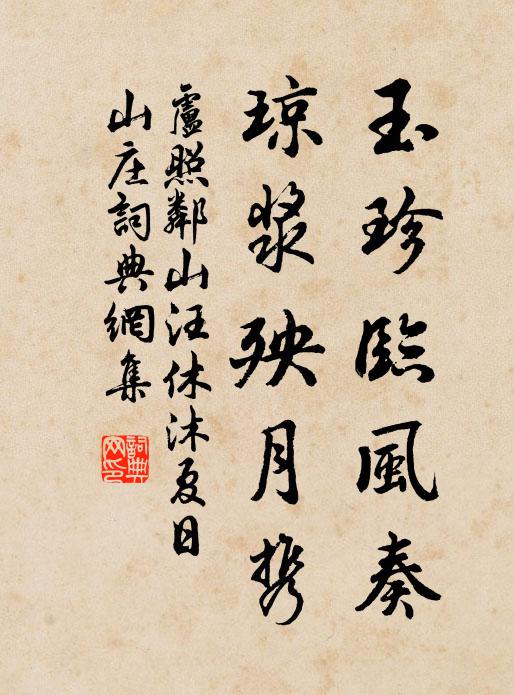 玉珍臨風奏
琼浆殃月携
盧照鄰山汪休沐夏日
山庄詞典網集
詞典网印